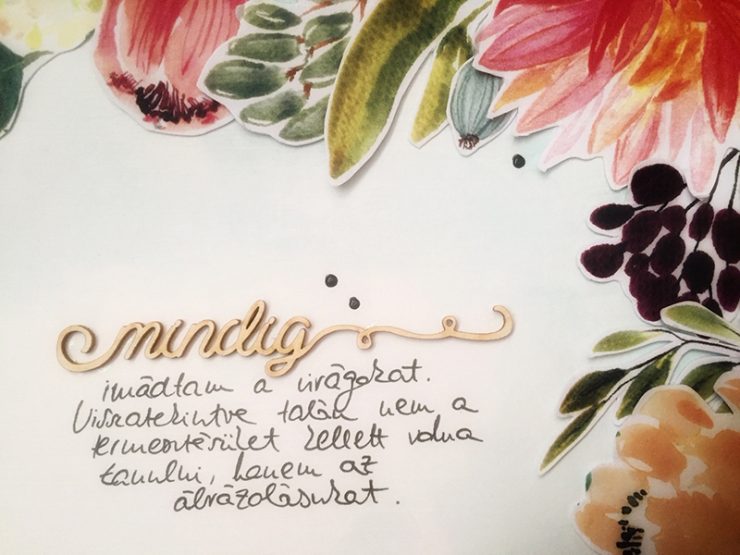 mindig
imádtam a virágokat.
Visszatekintve talán nem a
természetvédelmet kellett volna
tanulni, hanem az
ábrázolásukat.